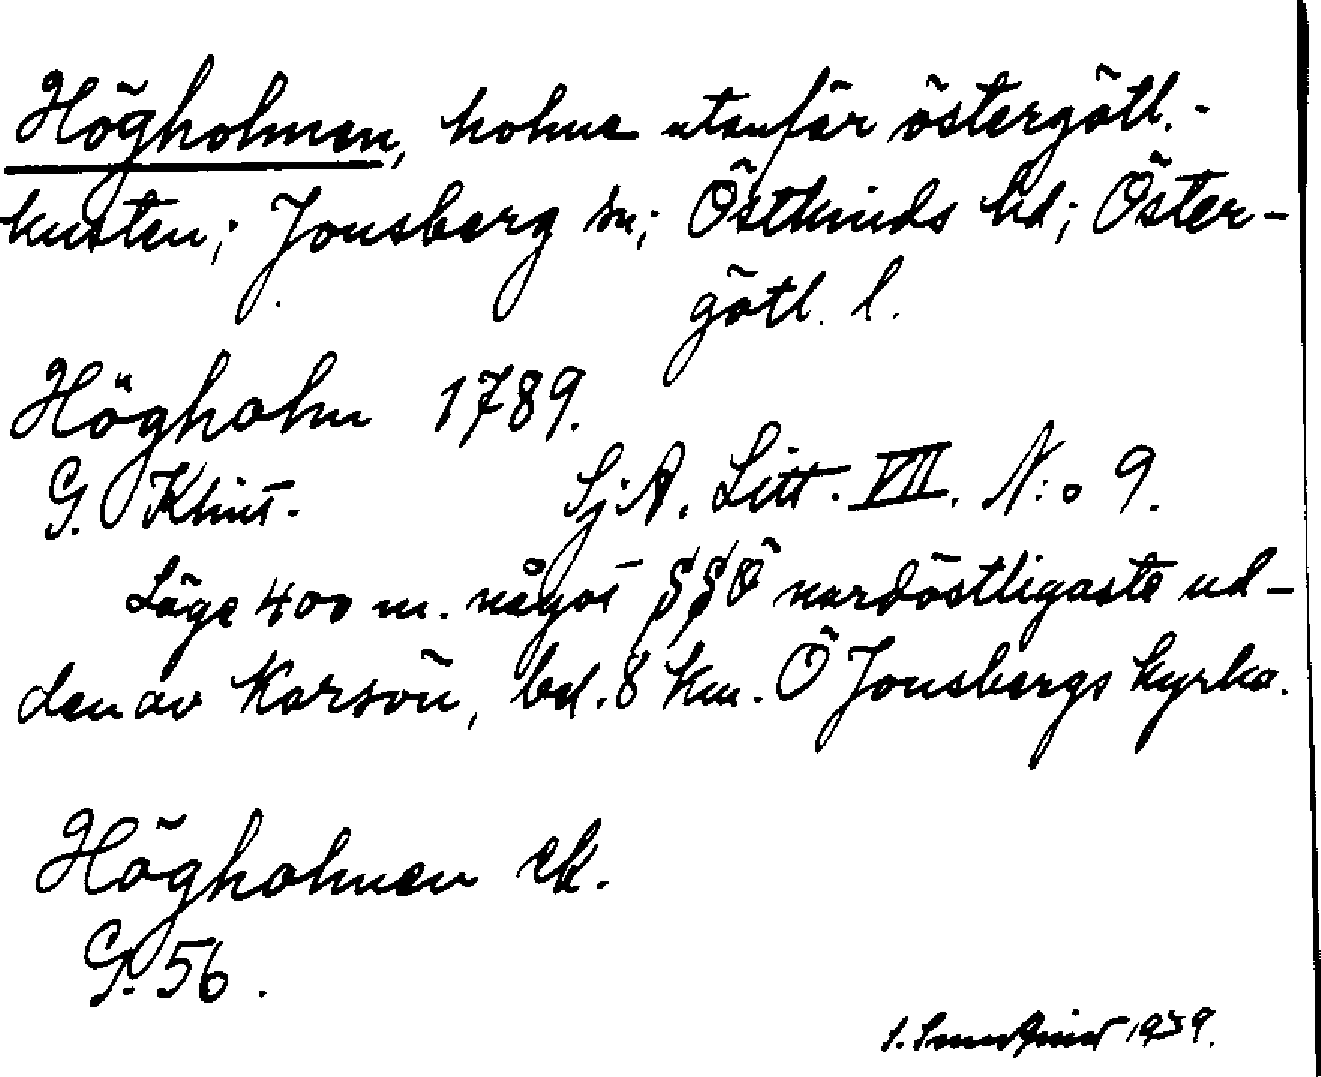 Högholmen, holme utanför östergötl.-
kusten; Jonsberg sn; Östkinds hd; Öster-
götl. l.
Högholm 1789.
G. Klint. SjA. Litt. VII. N:o 9.
Läge 400 m. något SSÖ nordöstligaste ud-
den av Korsön, bel. 8 km. Ö Jonsbergs kyrka.
Högholmen ek.
G. 56.
1939.